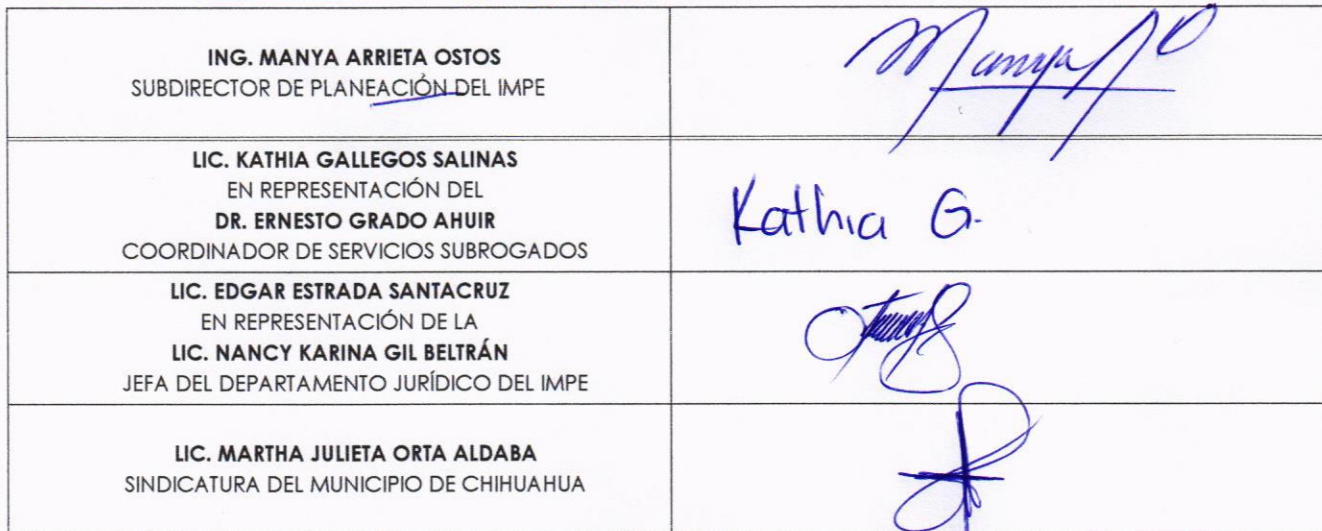 ING. MANYA ARRIETA OSTOS
SUBDIRECTOR DE PLANEACIÓN DEL IMPE
Manya AO
LIC. KATHIA GALLEGOS SALINAS
EN REPRESENTACIÓN DEL
DR. ERNESTO GRADO AHUIR
COORDINADOR DE SERVICIOS SUBROGADOS
Kathia G.
LIC. EDGAR ESTRADA SANTACRUZ
EN REPRESENTACIÓN DE LA
LIC. NANCY KARINA GIL BELTRÁN
JEFA DEL DEPARTAMENTO JURÍDICO DEL IMPE
LIC. MARTHA JULIETA ORTA ALDABA
SINDICATURA DEL MUNICIPIO DE CHIHUAHUA